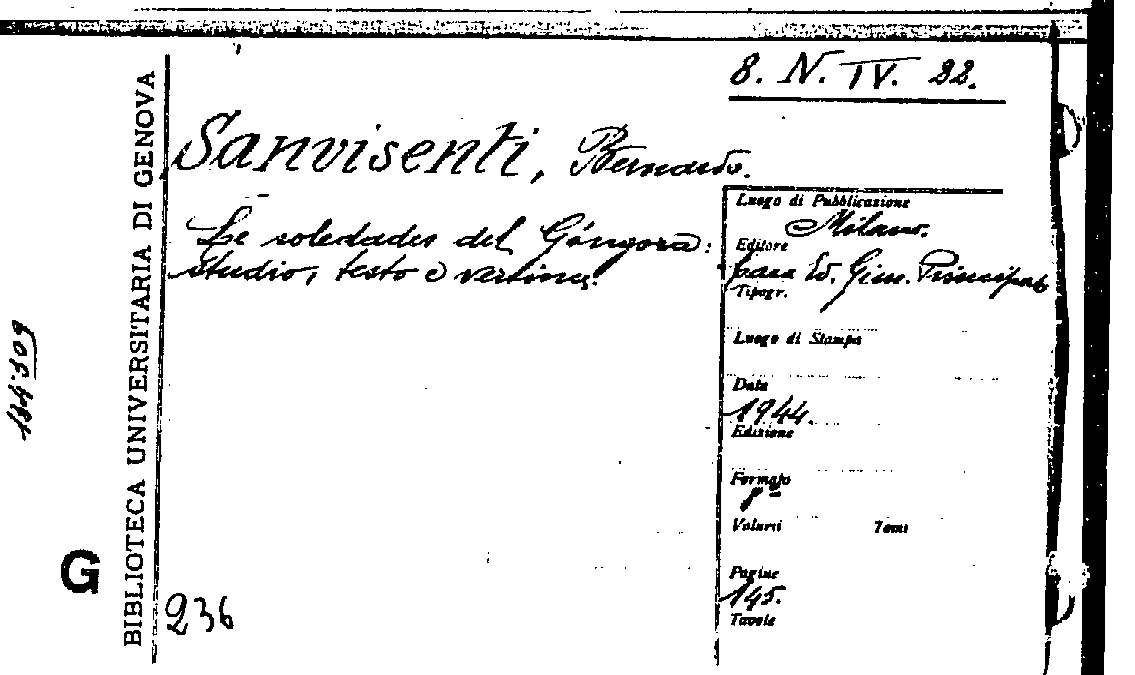 8. N. IV. 22.
Sanvisenti, Bernardo.
Le soledades del Góngora:
studio, testo e versione.
Luogo di Pubblicazione
Milano.
Editore
Casa Ed. Giu. Principato
Tipogr.
Luogo di Stampa
Data
1944.
Edizione
Formato
8º
Volumi Tomi
Pagine
145.
Tavole
BIBLIOTECA UNIVERSITARIA DI GENOVA
G
236